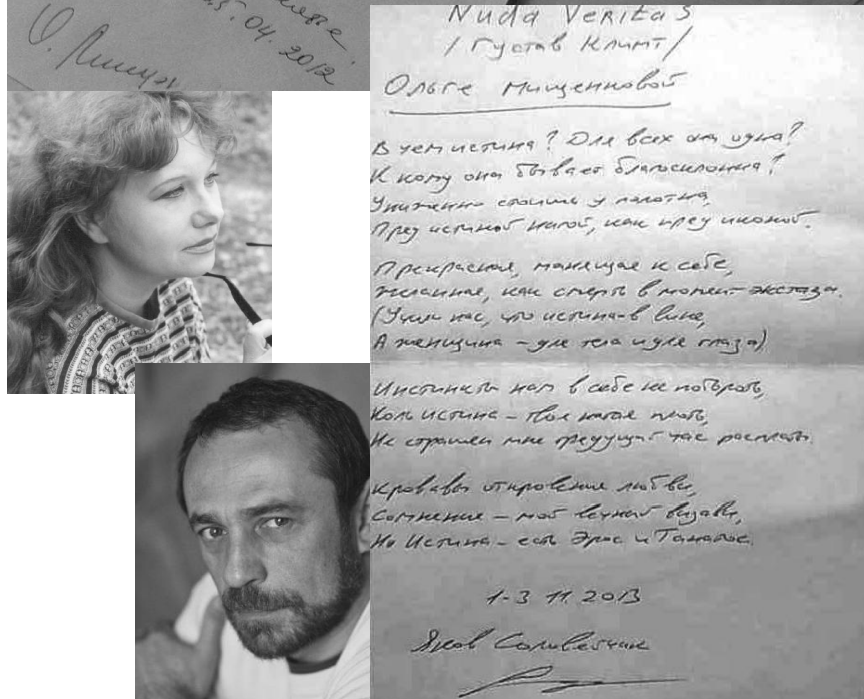 25.04.2012
Nuda Veritas
/Густав Климт/
Ольге Мищенковой
В чем истина? Для всех она одна?
К кому она бывает благосклонна?
Униженно стоишь у полотна,
Пред истиной нагой, как пред иконой.
Прекрасная, манящая к себе,
Желанная, как смерть в момент экстаза.
(Учили нас, что истина - в вине,
А женщина - для тела и для глаза)
Инстинкты нам в себе не побороть,
Коль истина - твоя нагая плоть,
Не страшен мне грядущий час расплаты.
Кровавы откровения любви,
Сомнение - мой вечный визави,
Но Истина - есть Эрос и Танатос.
1-3 11. 2013
Яков